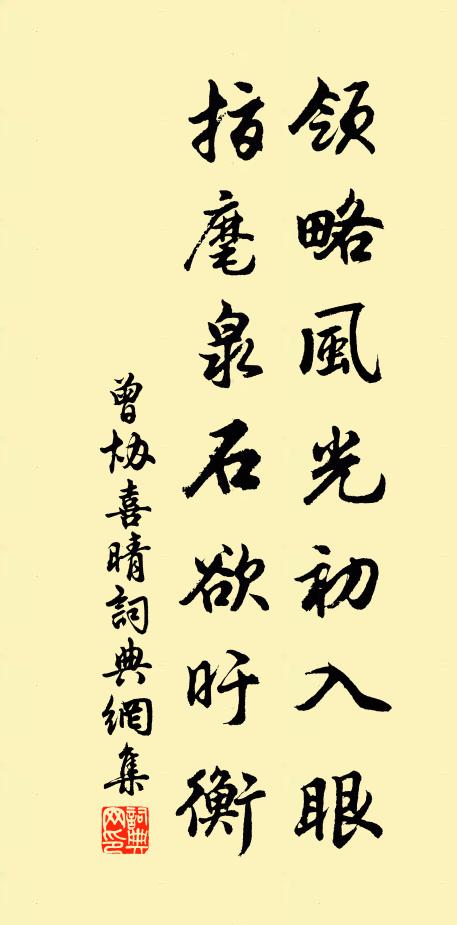 領略風光初入眼
指麾泉石欲盱衡
曾協喜晴詞典網集
詞典網印